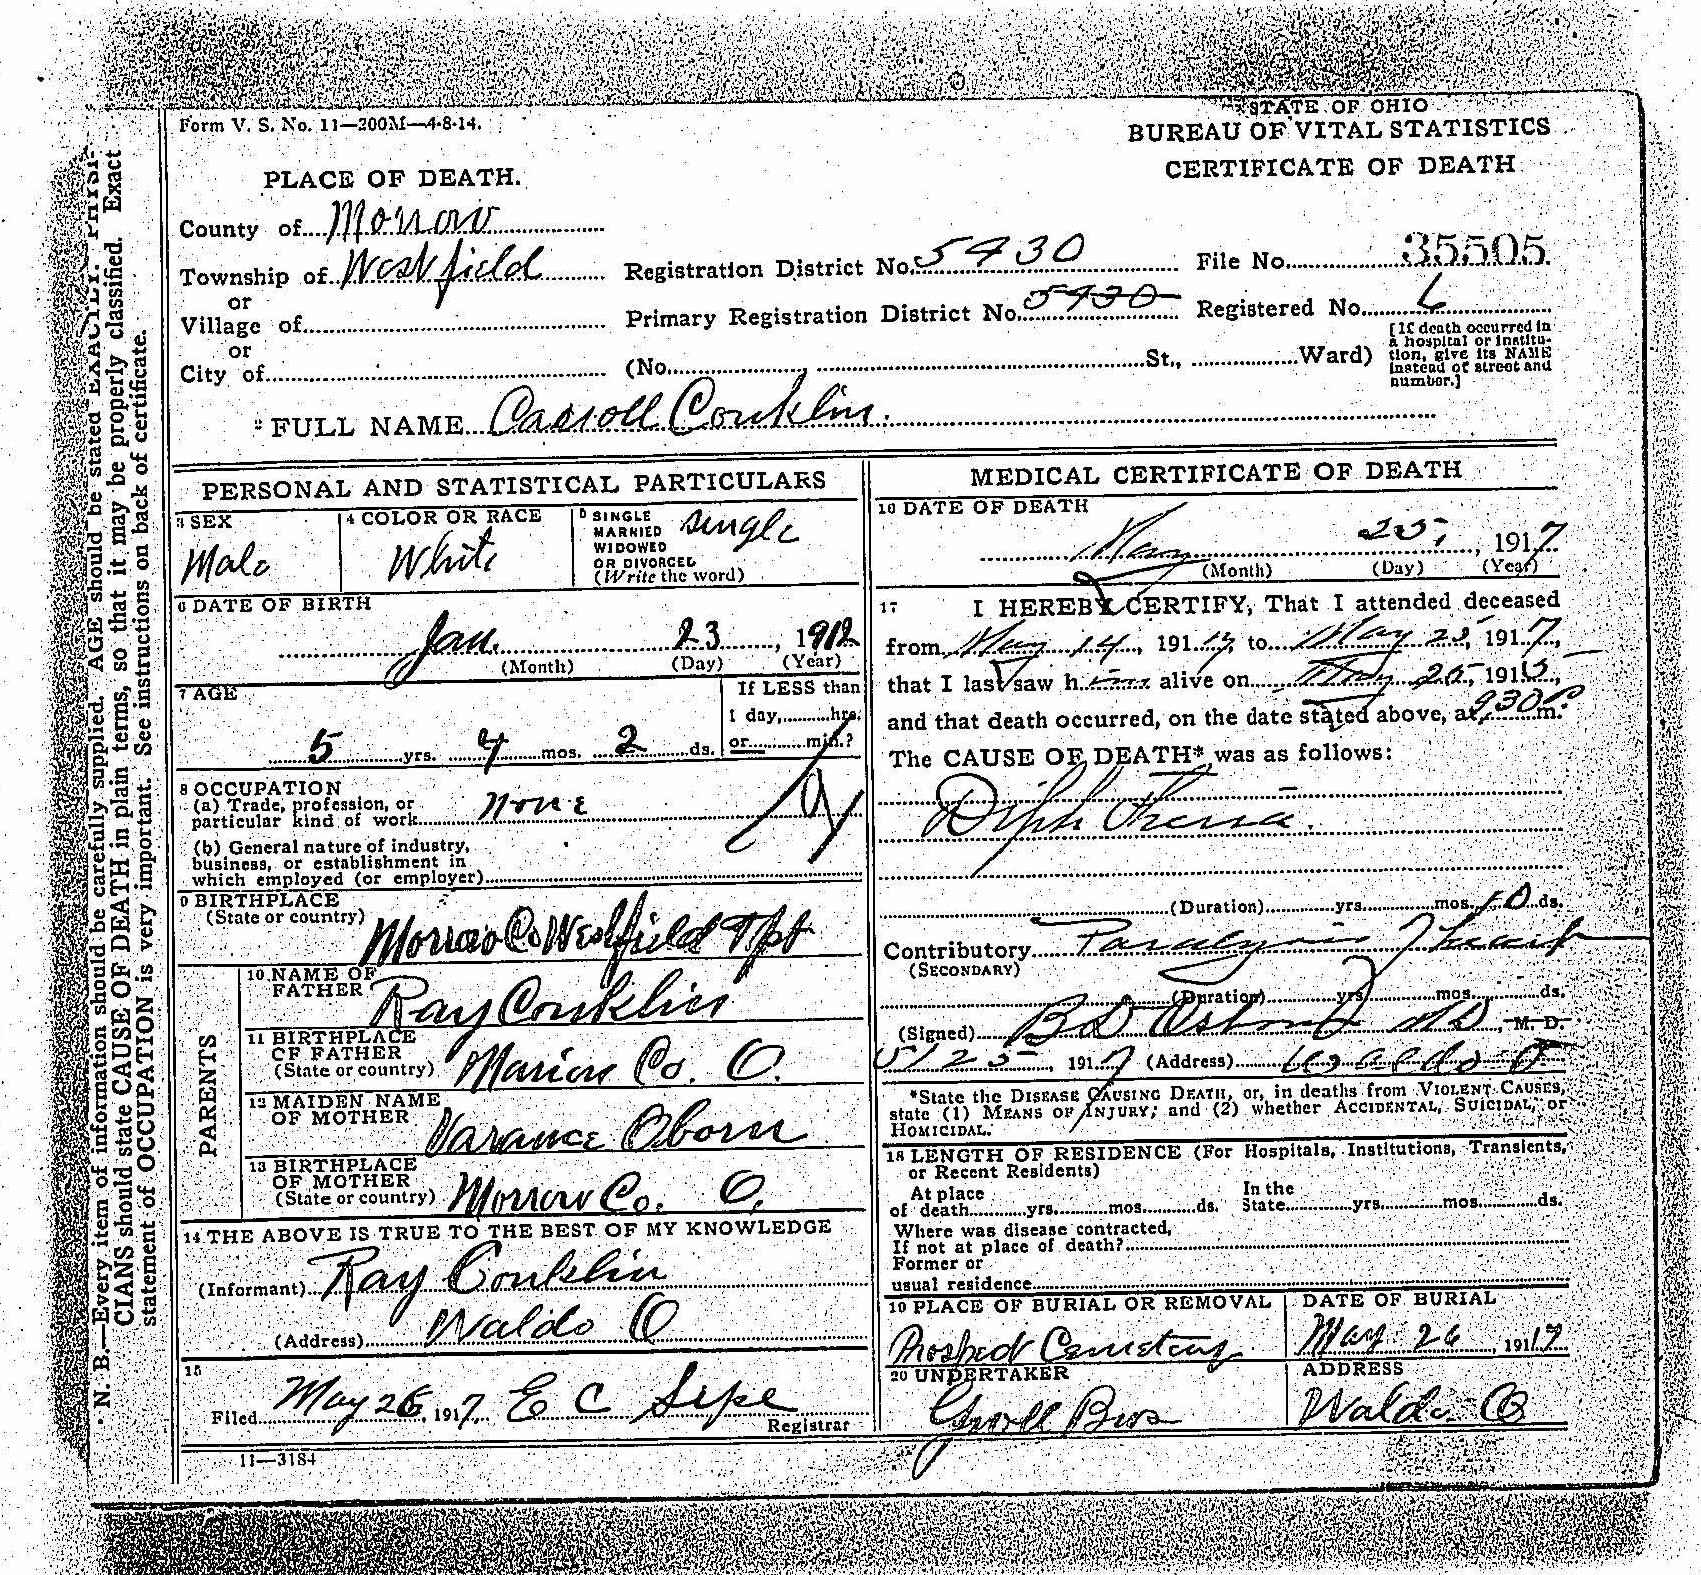 Form V. S. No. 11—200M—4-8-14.
STATE OF OHIO
BUREAU OF VITAL STATISTICS
CERTIFICATE OF DEATH
PLACE OF DEATH.
County of Morrow
Township of Westfield Registration District No. 5930 File No. 35505
or
Village of Primary Registration District No. 5930 Registered No. 6
or
City of (No. St., Ward)
[If death occurred in
a hospital or institu-
tion, give its NAME
instead of street and
number.]
2 FULL NAME Carroll Conklin.
PERSONAL AND STATISTICAL PARTICULARS
3 SEX
Male
4 COLOR OR RACE
White
5 SINGLE
MARRIED
WIDOWED
OR DIVORCED
(Write the word)
single
6 DATE OF BIRTH
Jan. 23, 1912
(Month) (Day) (Year)
7 AGE
5 yrs. 4 mos. 2 ds.
If LESS than
1 day, hrs.
or min.?
8 OCCUPATION
(a) Trade, profession, or
particular kind of work none
(b) General nature of industry,
business, or establishment in
which employed (or employer)
9 BIRTHPLACE
(State or country)
Morrow Co Westfield Tpt
PARENTS
10 NAME OF
FATHER
Ray Conklin
11 BIRTHPLACE
OF FATHER
(State or country) Marion Co. O.
12 MAIDEN NAME
OF MOTHER
Varance Oborn
13 BIRTHPLACE
OF MOTHER
(State or country) Morrow Co. O.
14 THE ABOVE IS TRUE TO THE BEST OF MY KNOWLEDGE
(Informant) Ray Conklin
(Address) Waldo O
15
Filed May 26, 1917 E C Sipe
Registrar
11—3184
MEDICAL CERTIFICATE OF DEATH
16 DATE OF DEATH
May 25, 1917
(Month) (Day) (Year)
17 I HEREBY CERTIFY, That I attended deceased
from May 14, 1917, to May 25, 1917,
that I last saw him alive on May 25, 1915,
and that death occurred, on the date stated above, at 930P m.
The CAUSE OF DEATH* was as follows:
Diphtheria.
(Duration) yrs. mos. 10 ds.
Contributory Paralysis Heart
(SECONDARY)
(Duration) yrs. mos. ds.
(Signed) B D Osborn MD M. D.
5/25, 1917 (Address) Waldo O
*State the DISEASE CAUSING DEATH, or, in deaths from VIOLENT CAUSES,
state (1) MEANS OF INJURY; and (2) whether ACCIDENTAL, SUICIDAL, or
HOMICIDAL.
18 LENGTH OF RESIDENCE (For Hospitals, Institutions, Transients,
or Recent Residents)
At place
of death yrs. mos. ds.
In the
State yrs. mos. ds.
Where was disease contracted,
If not at place of death?
Former or
usual residence
19 PLACE OF BURIAL OR REMOVAL
Prospect Cemetery
DATE OF BURIAL
May 26, 1917
20 UNDERTAKER
Bros
ADDRESS
Waldo O
N. B.—Every item of information should be carefully supplied. AGE should be stated EXACTLY. PHYSI-
CIANS should state CAUSE OF DEATH in plain terms, so that it may be properly classified. Exact
statement of OCCUPATION is very important. See instructions on back of certificate.